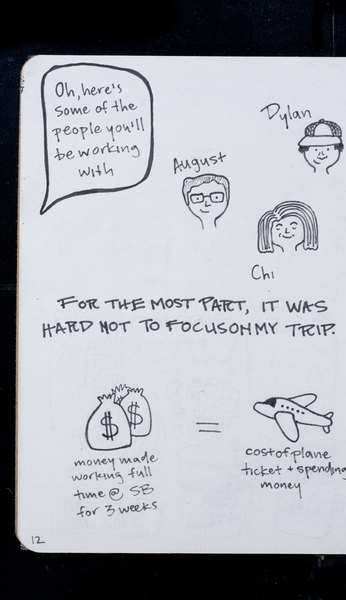 Oh, here's
some of the
people you'll
be working
with
Dylan
August
Chi
FOR THE MOST PART, IT WAS
HARD NOT TO FOCUS ON MY TRIP.
$ $
=
money made
working full
time @ SB
for 3 weeks
cost of plane
ticket + spending
money
12